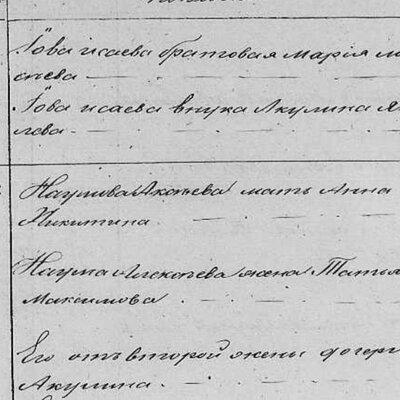 Іова Исаева братовая Марія М
сѣева
Іова Исаева внука Акулина Я
лева
Наумова Алексѣева мать Анна
Никитина
Наума Алексѣева жена Татья
Максимова
Его отъ второй жены дочери
Акулина